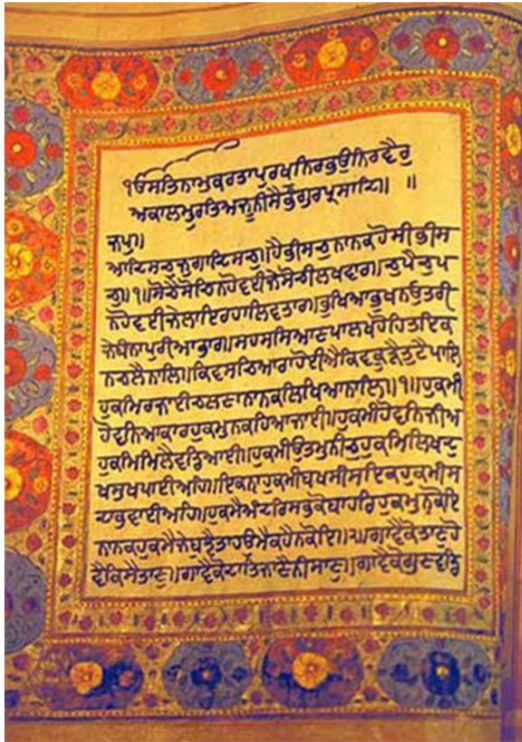 ੴਸਤਿਨਾਮੁਕਰਤਾਪੁਰਖੁਨਿਰਭਉਨਿਰਵੈਰੁ
ਅਕਾਲਮੂਰਤਿਅਜੂਨੀਸੈਭੰਗੁਰਪ੍ਰਸਾਦਿ॥ ॥
ਜਪੁ॥
ਆਦਿਸਚੁਜੁਗਾਦਿਸਚੁ॥ਹੈਭੀਸਚੁਨਾਨਕਹੋਸੀਭੀਸ
ਚੁ॥੧॥ਸੋਚੈਸੋਚਿਨਹੋਵਈਜੇਸੋਚੀਲਖਵਾਰ॥ਚੁਪੈਚੁਪ
ਨਹੋਵਈਜੇਲਾਇਰਹਾਲਿਵਤਾਰ॥ਭੁਖਿਆਭੁਖਨਉਤਰੀ
ਜੇਬੰਨਾਪੁਰੀਆਭਾਰ॥ਸਹਸਸਿਆਣਪਾਲਖਹੋਹਿਤਇਕ
ਨਚਲੈਨਾਲਿ॥ਕਿਵਸਚਿਆਰਾਹੋਈਐਕਿਵਕੂੜੈਤੁਟੈਪਾਲਿ॥
ਹੁਕਮਿਰਜਾਈਚਲਣਾਨਾਨਕਲਿਖਿਆਨਾਲਿ॥੧॥ਹੁਕਮੀ
ਹੋਵਨਿਆਕਾਰਹੁਕਮੁਨਕਹਿਆਜਾਈ॥ਹੁਕਮੀਹੋਵਨਿਜੀਅ
ਹੁਕਮਿਮਿਲੈਵਡਿਆਈ॥ਹੁਕਮੀਉਤਮੁਨੀਚੁਹੁਕਮਿਲਿਖਦੁ
ਖਸੁਖਪਾਈਅਹਿ॥ਇਕਨਾਹੁਕਮੀਬਖਸੀਸਇਕਿਹੁਕਮੀਸ
ਦਾਭਵਾਈਅਹਿ॥ਹੁਕਮੈਅੰਦਰਿਸਭੁਕੋਬਾਹਰਿਹੁਕਮੁਨਕੋਇ
ਨਾਨਕਹੁਕਮੈਜੇਬੁਝੈਤਾਹਉਮੈਕਹੈਨਕੋਇ॥੨॥ਗਾਵੈਕੋਤਾਣੁਹੋ
ਵੈਕਿਸੈਤਾਣੁ॥ਗਾਵੈਕੋਦਾਤਿਜਾਣੈਨੀਸਾਣੁ॥ਗਾਵੈਕੋਗੁਣਵਡਿ